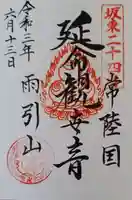 坂東二十四
常陸国
延命観世音
雨引山
令和三年
六月十三日